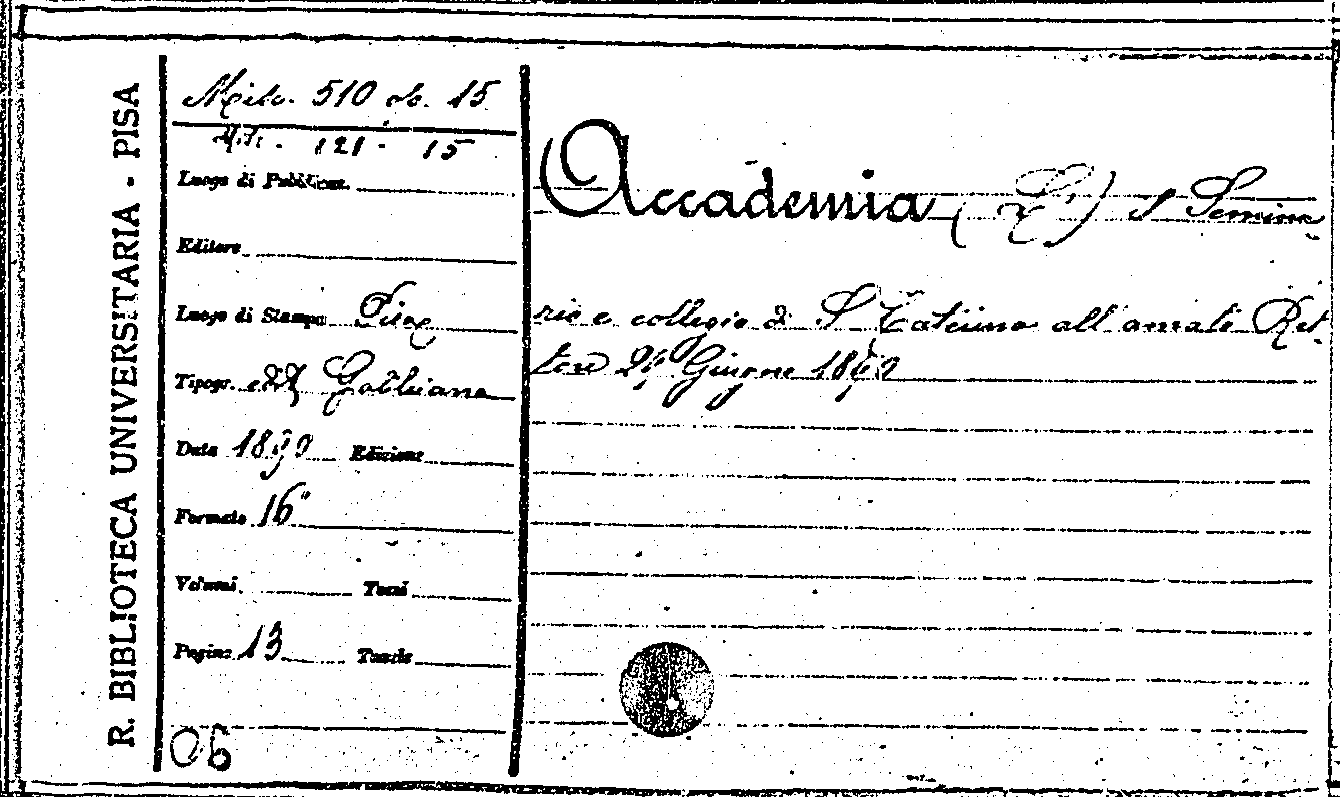 R. BIBLIOTECA UNIVERSITARIA - PISA
510 15
121 - 15
Luogo di Pubblicaz.
Editore
Luogo di Stampa Pisa
Tipogr.
Data Edizione
Formato 16°
Volumi Tomi
Pagine 13 Tavole
06
Accademia ( ) Semina
rio e collegio di S Caterina all' amato Ret-
tore Giugno